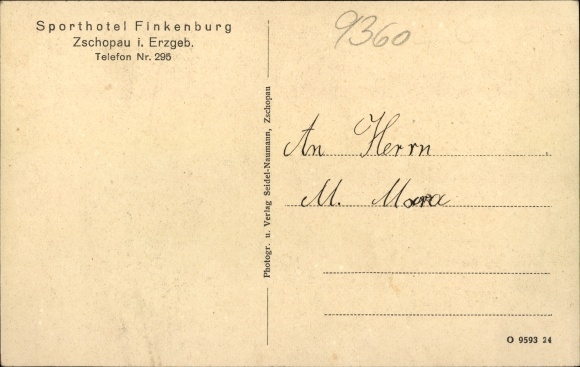 Sporthotel Finkenburg
Zschopau i. Erzgeb.
Telefon Nr. 295
9360
Photogr. u. Verlag Seidel-Naumann, Zschopau
An Herrn
M.
O 9593 24